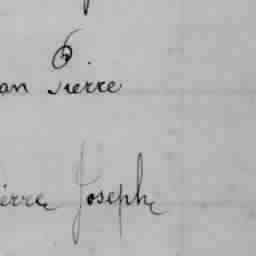 6
an Pierre
ierre Joseph